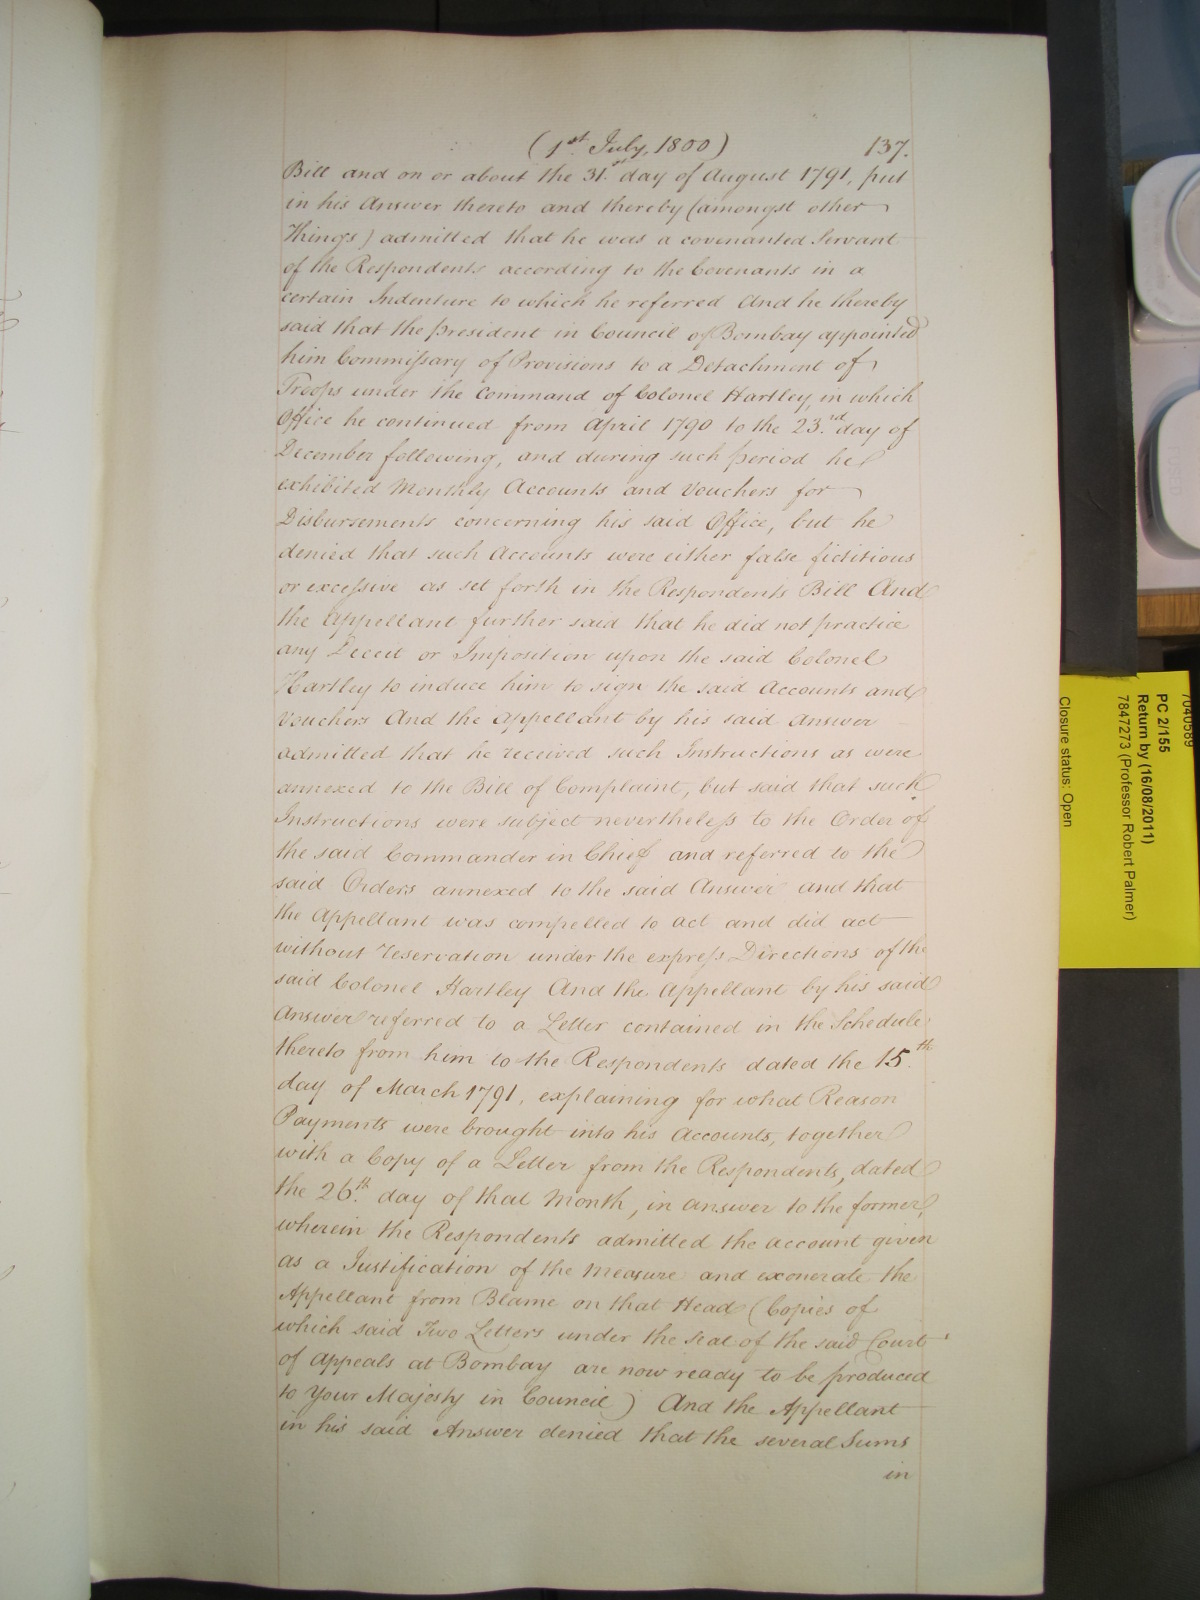 (1st July, 1800) 137.
Bill and on or about the 31st day of August 1791, put
in his Answer thereto and thereby (amongst other
Things) admitted that he was a covenanted Servant
of the Respondents according to the Covenants in a
certain Indenture to which he referred And he thereby
said that the president in Council of Bombay appointed
him Commissary of Provisions to a Detachment of
Troops under the Command of Colonel Hartley, in which
Office he continued from April 1790 to the 23rd day of
December following, and during such period he
exhibited Monthly Accounts and Vouchers for
Disbursements concerning his said Office, but he
denied that such Accounts were either false fictitious
or excessive as set forth in the Respondents Bill And
the Appellant further said that he did not practice
any Deceit or Imposition upon the said Colonel
Hartley to induce him to sign the said Accounts and
Vouchers And the Appellant by his said Answer
admitted that he received such Instructions as were
annexed to the Bill of Complaint, but said that such
Instructions were subject nevertheless to the Order of
the said Commander in Chief and referred to the
said Orders annexed to the said Answer and that
the Appellant was compelled to act and did act
without reservation under the express Directions of the
said Colonel Hartley And the Appellant by his said
Answer referred to a Letter contained in the Schedule
thereto from him to the Respondents dated the 15th
day of March 1791, explaining for what Reason
Payments were brought into his Accounts, together
with a Copy of a Letter from the Respondents, dated
the 26th day of that Month, in answer to the former,
wherein the Respondents admitted the account given
as a Justification of the Measure and exonerate the
Appellant from Blame on that Head (Copies of
which said Two Letters under the seal of the said Court
of Appeals at Bombay are now ready to be produced
to Your Majesty in Council) And the Appellant
in his said Answer denied that the several Sums
in
7040589
PC 2/155
Return by (16/08/2011)
7847273 (Professor Robert Palmer)
Closure status: Open